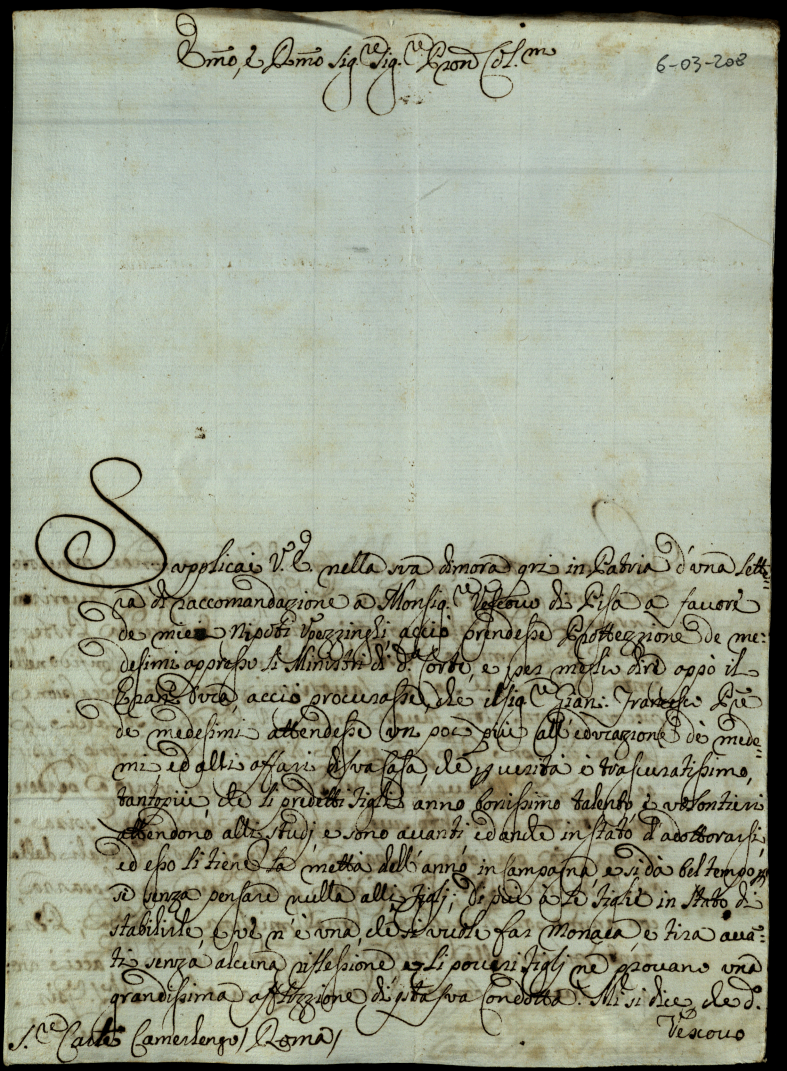 Emo, e Rmo Sig.re Sig.re Pron Col.mo
6-03-208
Supplicai V.E. nella sua dimora qui in Patria d'una lette=
ra di raccomandazione a Monsig.re Vescovo di Pisa a favore
de miei Nipoti Upezzinghi, acciò prendesse Prottezzione de me:
desimi appresso li Ministri di d.a Corte, e per meglio dire appò il
Gran Duca, acciò procurasse, che il Sig.re Gian: Francesco Pre
de medesimi attendesse un poc più all'educazione de mede=
mi, ed alli affari di sua Casa, che in verità è trascuratissimo,
tantopiù, che li predetti Figli anno bonissimo talento, e volontieri
attendono alli studj e sono avanti ed anche in stato d'adottorarsi,
ed esso li tiene la mettà dell'anno in Campagna, e si dà bel tempo p
se senza pensare nulla alli Figlj; Di più à tè Figlie in stato di
stabilirle, e ve n'è una, che si vuole far Monaca, e tira avan=
ti senza alcuna riflessione e li poveri Figlj ne provano una
grandissima afflizzione di qsta sua Condotta. Mi si dice, che d.o
Vescovo
S.re Carle Camerlengo / Roma /